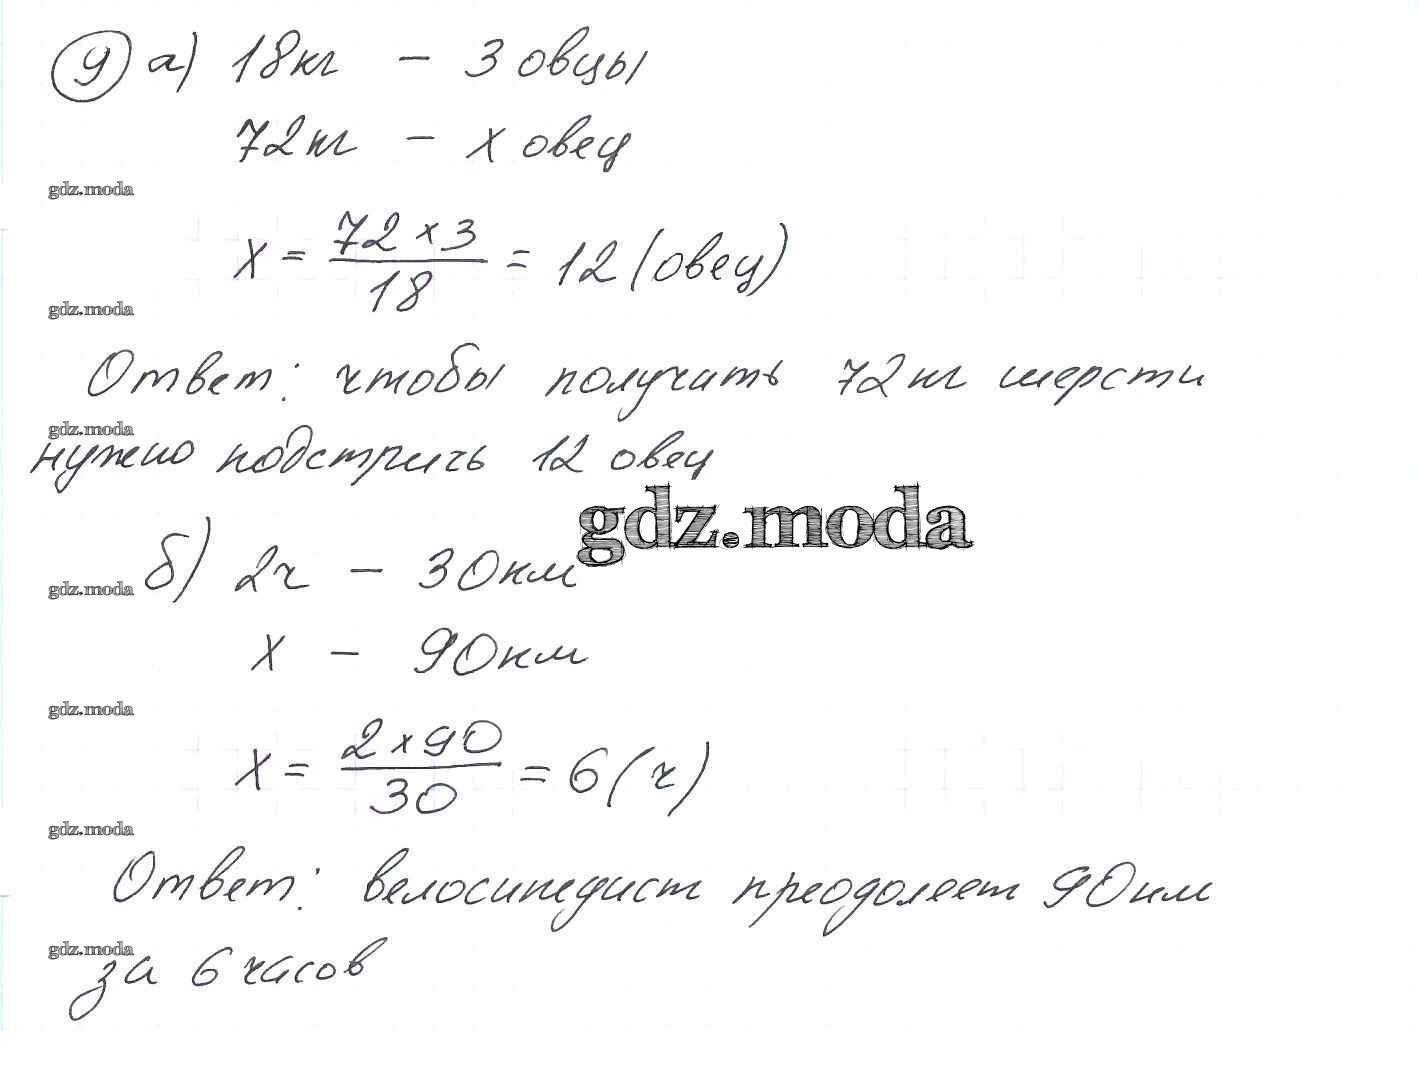 9 а) 18кг - 3 овцы
72кг - х овец
gdz.moda
х = 72 × 3 / 18 = 12 (овец)
gdz.moda
Ответ: чтобы получать 72кг шерсти
gdz.moda
нужно подстричь 12 овец
gdz.moda
б) 2ч - 30км
gdz.moda
х - 90км
gdz.moda
х = 2 × 90 / 30 = 6 (ч)
gdz.moda
Ответ: велосипедист преодолеет 90км
gdz.moda
за 6 часов